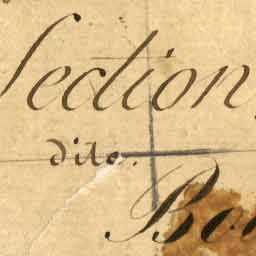 Section,
dito.
Bo